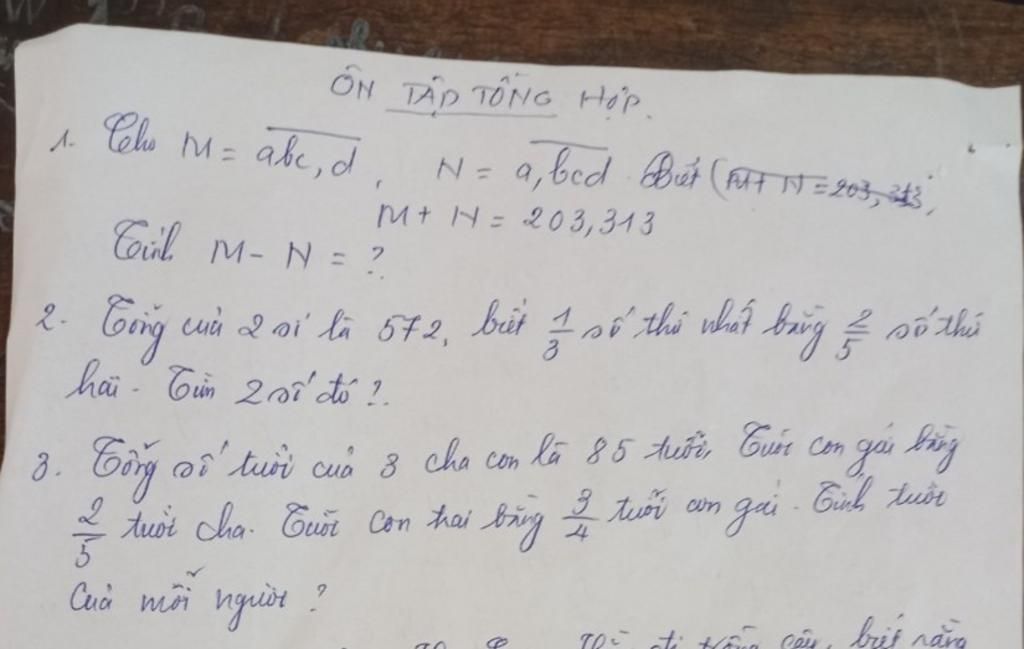 ÔN TẬP TỔNG HỢP.
1. Cho M = abc,d, N = a,bcd. Biết (M + N = 203,313;
M + N = 203,313
Tính M - N = ?
2. Tổng của 2 số là 572, biết 1/3 số thứ nhất bằng 2/5 số thứ
hai. Tìm 2 số đó?.
3. Tổng số tuổi của 3 cha con là 85 tuổi. Tuổi con gái bằng
2/5 tuổi cha. Tuổi con trai bằng 3/4 tuổi con gái. Tính tuổi
của mỗi người?
đi trồng cây, biết rằng